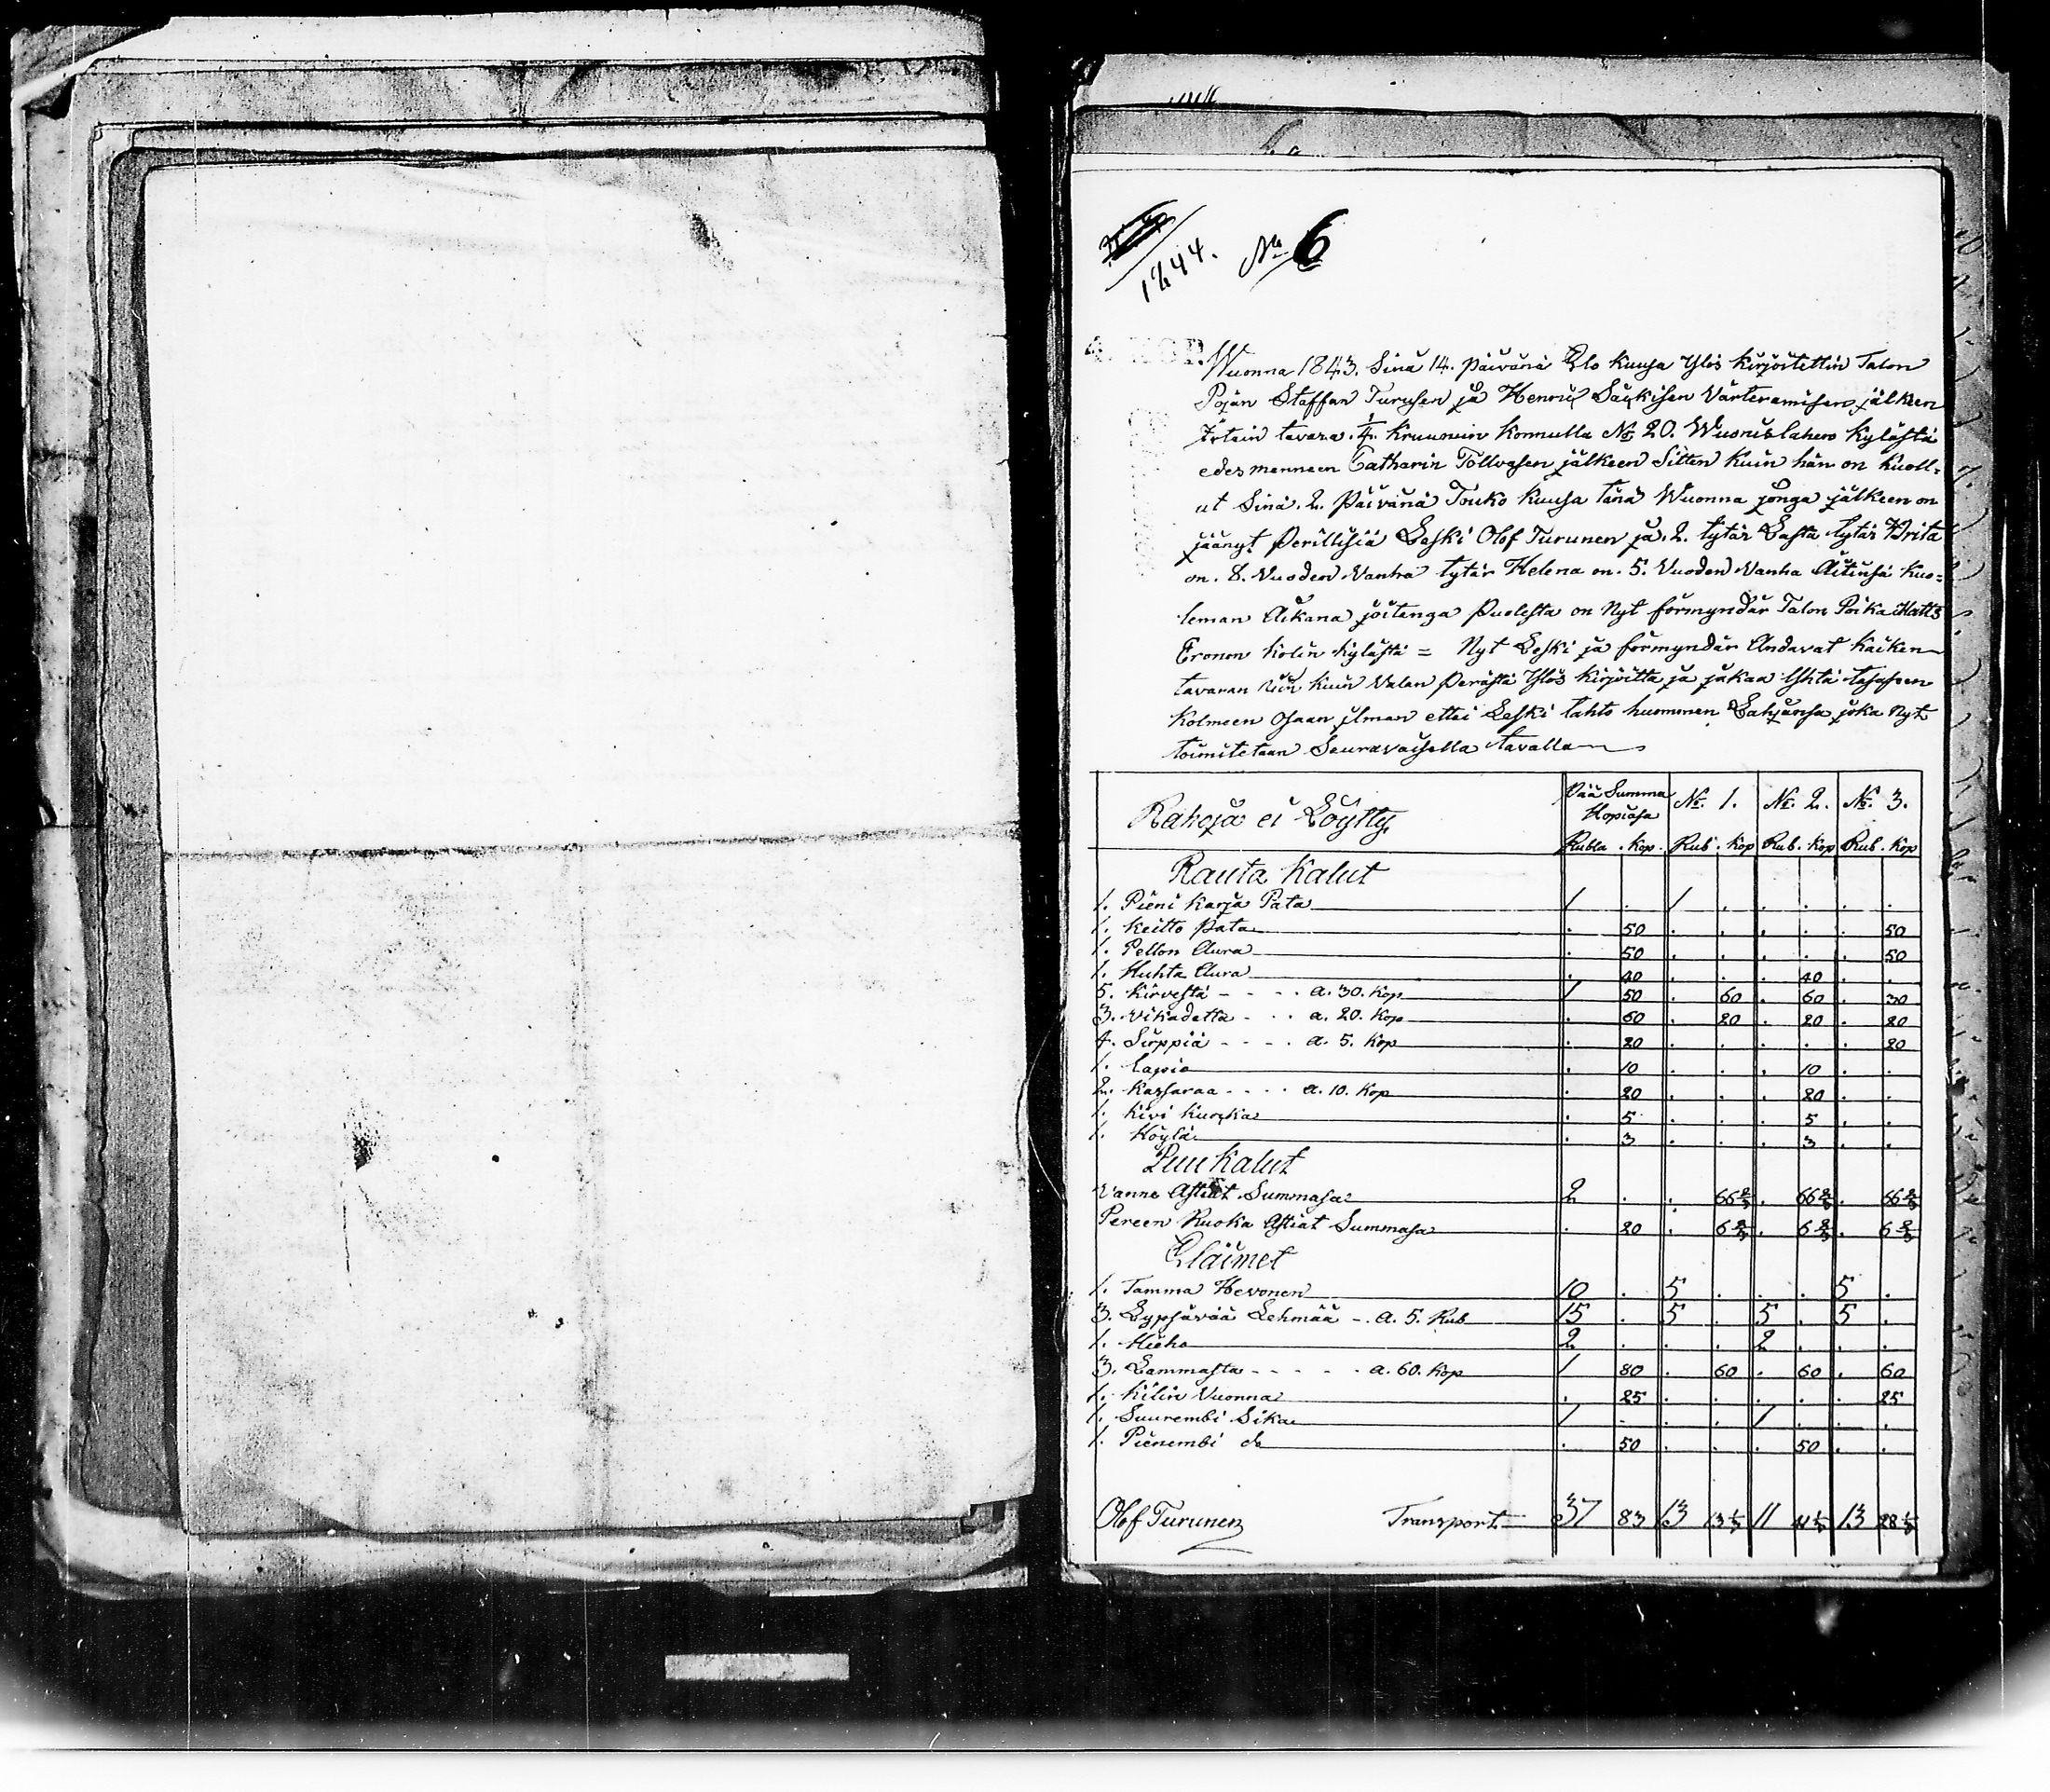 1844. № 6
4. KOP.
Wuonna 1843. Sinä 14. päivänä Elo kuusa Ylös kirjoitettin Talon
Pojan Staffan Turusen ja Henric Säykisen Värteramisen jälkeen
Irtain tavara. 1/4. Kruunun konnulla No 20. Wuonislahen kylästä
edes menneen Catharin Tollvasen jälkeen Sitten kuin hän on kuoll-
ut Sinä. 2. Päivänä Touko kuusa tänä Wuonna jonga jälkeen on
jäänyt Perillisiä Leski Olof Turunen ja. 2. tytär Lasta tytär Brita
on. 8. Vuoden Vanha tytär Helena on. 5. Vuoden Vanha Äitinsä kuo-
leman Aikana joitenga Puolesta on Nyt förmyndär Talon Poika Matts
Eronen Kolin kylästä = Nyt Leski ja förmyndär Andavat kaiken
tavaran niin kuin Valan Perästä Ylös kirjoitta ja jakaa Yhtä tasaseen
kolmeen Osaan ilman ettei Leski tahto huommen Lahjansa joka Nyt
toimitetaan Seuravaisella tavalla
Rahoja ei Löytty. Pää Summa Hopiasa No. 1. No. 2. No. 3.
Rubla. Kop. Rub. Kop Rub. Kop Rub. Kop
Rauta Kalut
1. Pieni karja Pata 1 . 1 . . . . .
1. Keitto Pata . 50 . . . . . 50
1. Pellon Aura . 50 . . . . . 50
1. Huhta Aura . 40 . . . 40 . .
5. Kirvestä - - - - a. 30. Kop 1 50 . 60 . 60 . 30
3. Vikadetta - - - a. 20. Kop . 60 . 20 . 20 . 20
4. Sirppiä - - - - a. 5. Kop . 20 . . . . . 20
1. Lapio . 10 . . . 10 . .
2. Kassaraa - - - - a. 10. Kop . 20 . . . 20 . .
1. Kivi Kuokka . 5 . . . 5 . .
1. Höylä . 3 . . . 3 . .
Puu Kalut
Vanne Astiat Summasa 2 . . 66 2/3 . 66 2/3 . 66 2/3
Pereen Ruoka Astiat Summasa . 20 . 6 2/3 . 6 2/3 . 6 2/3
Eläimet
1. Tamma Hevonen 10 . 5 . . . 5 .
3. Lypsävää Lehmää - a. 5. Rub 15 . 5 . 5 . 5 .
1. Hieho 2 . . . 2 . . .
3. Lammasta - - - - - a. 60. Kop 1 80 . 60 . 60 . 60
1. Kilin Vuonna . 25 . . . . . 25
1. Suurembi Sika 1 . . . 1 . . .
1. Pienembi do . 50 . . . 50 . .
Olof Turunen Transport 37 83 13 13 1/3 11 41 1/3 13 28 1/3